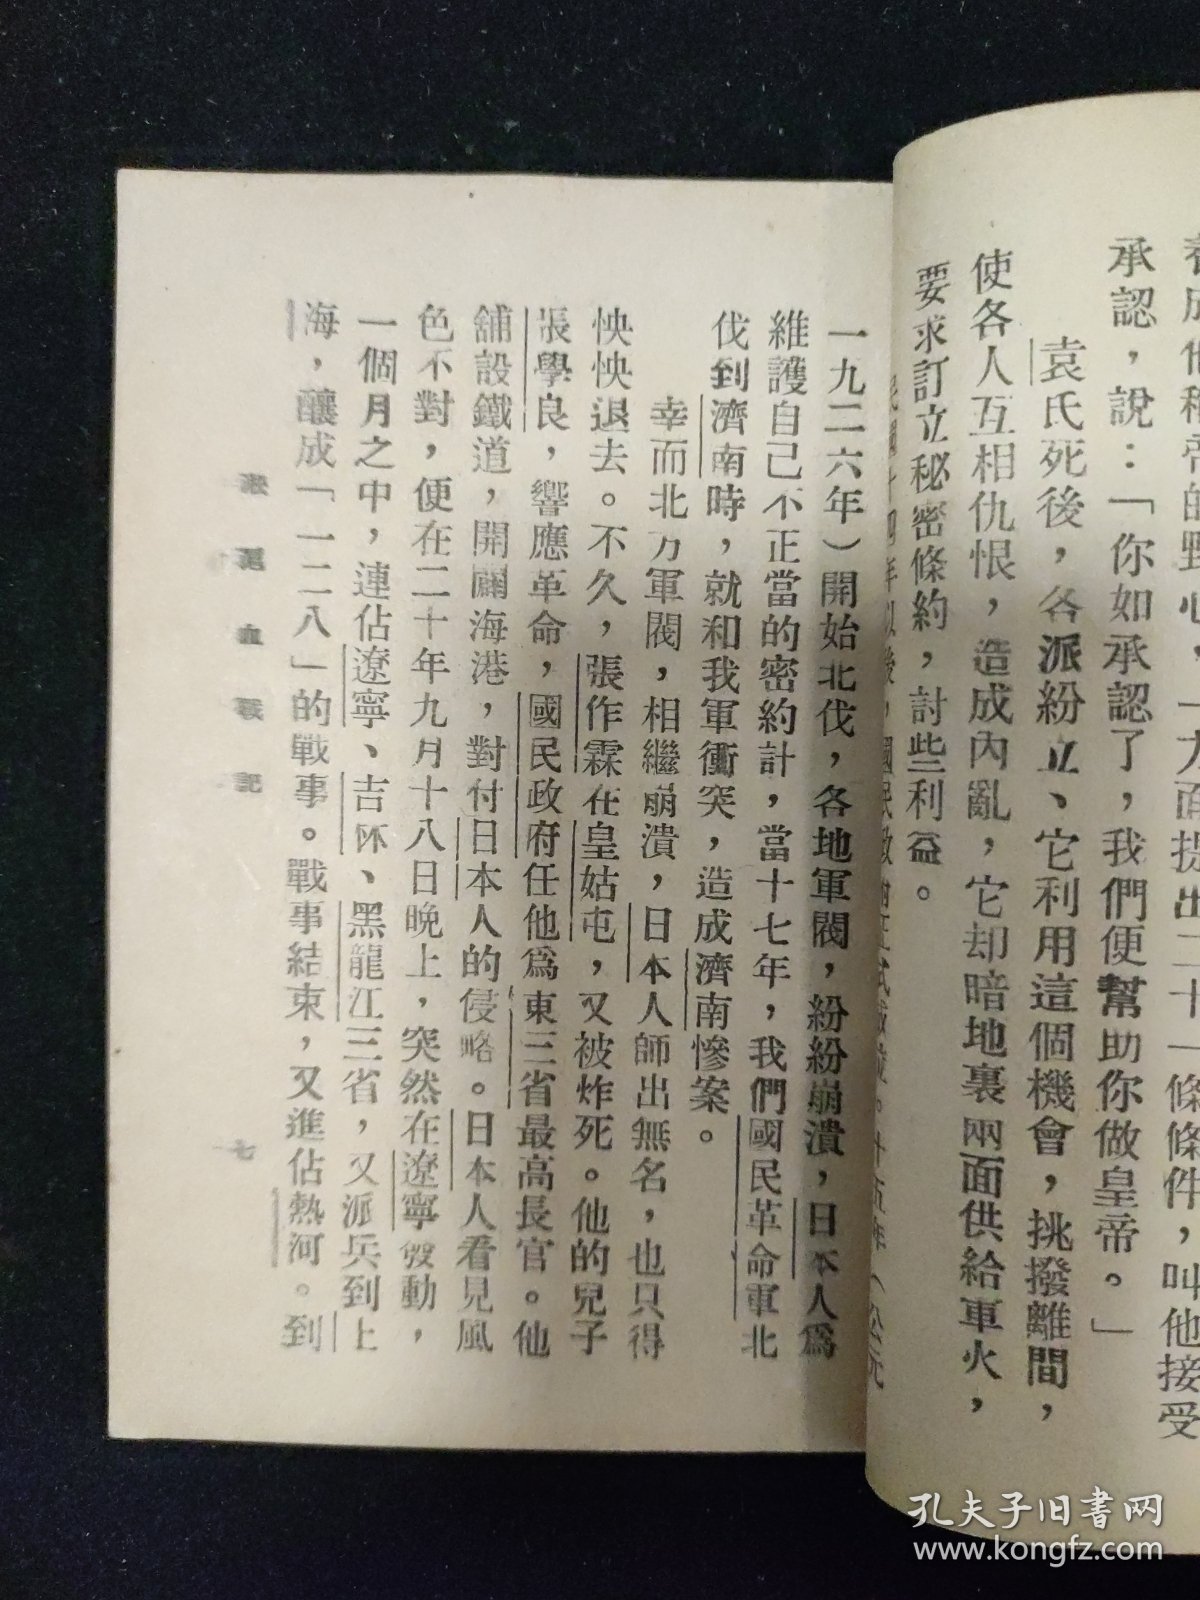 承認，說：「你如承認了，我們便幫助你做皇帝。」
袁氏死後，各派紛立、它利用這個機會，挑撥離間，
使各人互相仇恨，造成內亂，它却暗地裏兩面供給軍火，
要求訂立秘密條約，討些利益。
一九二六年）開始北伐，各地軍閥，紛紛崩潰，日本人爲
維護自己不正當的密約計，當十七年，我們國民革命軍北
伐到濟南時，就和我軍衝突，造成濟南慘案。
幸而北方軍閥，相繼崩潰，日本人師出無名，也只得
怏怏退去。不久，張作霖在皇姑屯，又被炸死。他的兒子
張學良，響應革命，國民政府任他爲東三省最高長官。他
舖設鐵道，開闢海港，對付日本人的侵略。日本人看見風
色不對，便在二十年九月十八日晚上，突然在遼寧發動，
一個月之中，連佔遼寧、吉林、黑龍江三省，又派兵到上
海，釀成「一二八」的戰事。戰事結束，又進佔熱河。到
血戰記
七
孔夫子旧书网
www.kongfz.com